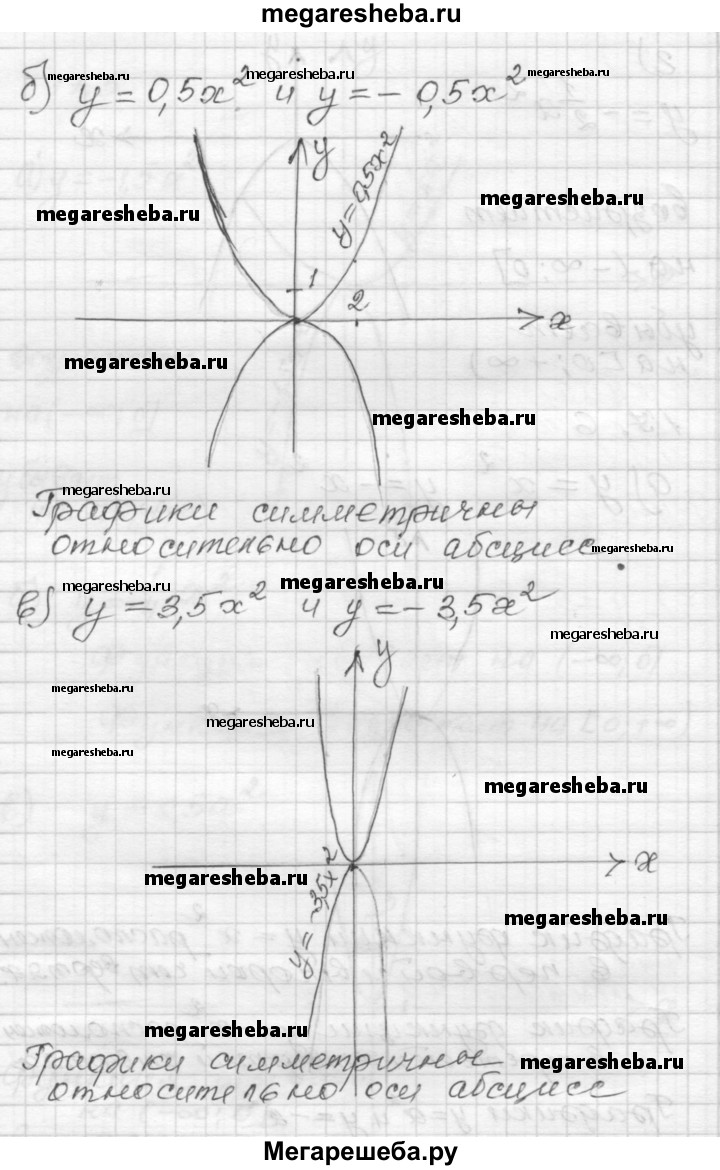 megaresheba.ru
б) y = 0,5x² и y = - 0,5x²
megaresheba.ru megaresheba.ru megaresheba.ru
y
y=0,5x²
megaresheba.ru
megaresheba.ru
1
2
x
megaresheba.ru
megaresheba.ru
megaresheba.ru
Графики симметричны
относительно оси абсцисс.
megaresheba.ru
megaresheba.ru megaresheba.ru
в) y = 3,5x² и y = - 3,5x²
megaresheba.ru
y
megaresheba.ru
megaresheba.ru
megaresheba.ru
megaresheba.ru
x
megaresheba.ru
y = -3,5x²
megaresheba.ru
megaresheba.ru
Графики симметричны
megaresheba.ru
относительно оси абсцисс
Мегарешеба.ру